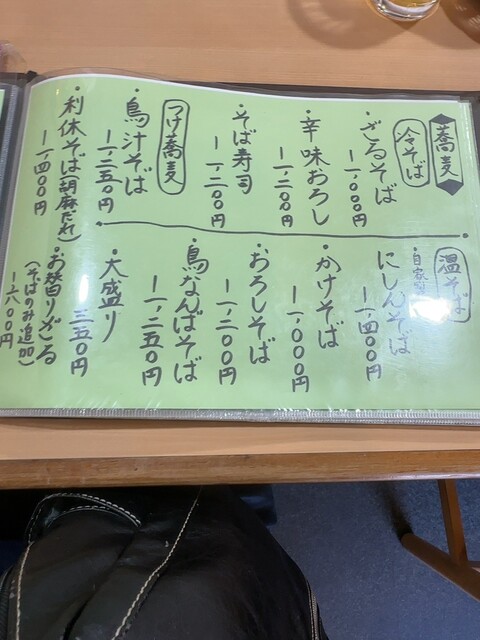 蕎麦
冷そば
・ざるそば
ー一、〇〇〇円
・辛味おろし
ー一、二〇〇円
・そば寿司
ー一、二〇〇円
つけ蕎麦
・鳥汁そば
ー一、二五〇円
・利休そば(胡麻だれ)
ー一、四〇〇円
温そば
・自家
にしんそば
ー一、四〇〇円
・かけそば
ー一、〇〇〇円
・おろしそば
ー一、二〇〇円
・鳥なんばそば
ー一、二五〇円
・大盛り
三五〇円
・お替りざる
(そばのみ追加)
ー六〇〇円